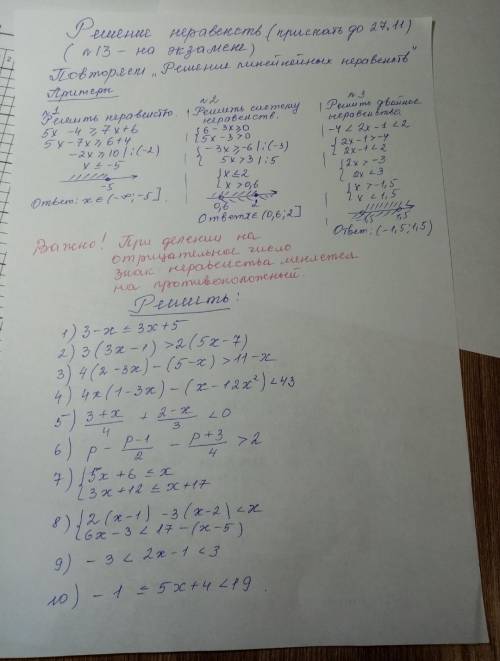 Решение неравенств (прислать до 27.11)
(№13 - на экзамене)
Повторяем „Решение линейнейных неравенств"
Примеры
№1
Решить неравенство.
5x - 4 ≥ 7x + 6
5x - 7x ≥ 6 + 4
-2x ≥ 10 | : (-2)
x ≤ -5
-5
Ответ: x ∈ (-∞; -5].
№2
Решить систему
неравенств.
{6 - 3x ≥ 0
{5x - 3 > 0
{-3x ≥ -6 | : (-3)
5x > 3 | : 5
{x ≤ 2
{x > 0,6
0,6 2
Ответ: x ∈ (0,6; 2]
№3
Решить двойное
неравенство
-4 < 2x - 1 < 2
{2x - 1 > -4
{2x - 1 < 2
{2x > -3
{2x < 3
{x > -1,5
{x < 1,5
-1,5 1,5
Ответ: (-1,5; 1,5)
Важно! При делении на
отрицательное число
знак неравенства меняется
на противоположный.
Решить:
1) 3 - x ≤ 3x + 5
2) 3(3x - 1) > 2(5x - 7)
3) 4(2 - 3x) - (5 - x) > 11 - x
4) 4x(1 - 3x) - (x - 12x²) < 43
5) (3 + x)/4 + (2 - x)/3 < 0
6) p - (p - 1)/2 - (p + 3)/4 > 2
7) {5x + 6 ≤ x
{3x + 12 ≤ x + 17
8) {2(x - 1) - 3(x - 2) < x
{6x - 3 < 17 - (x - 5)
9) -3 < 2x - 1 < 3
10) -1 ≤ 5x + 4 < 19.